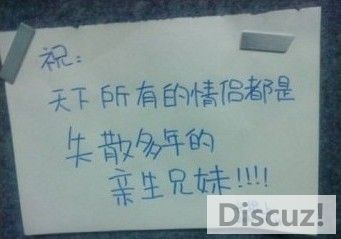 祝:
天下所有的情侣都是
失散多年的
亲生兄妹!!!!
Discuz!